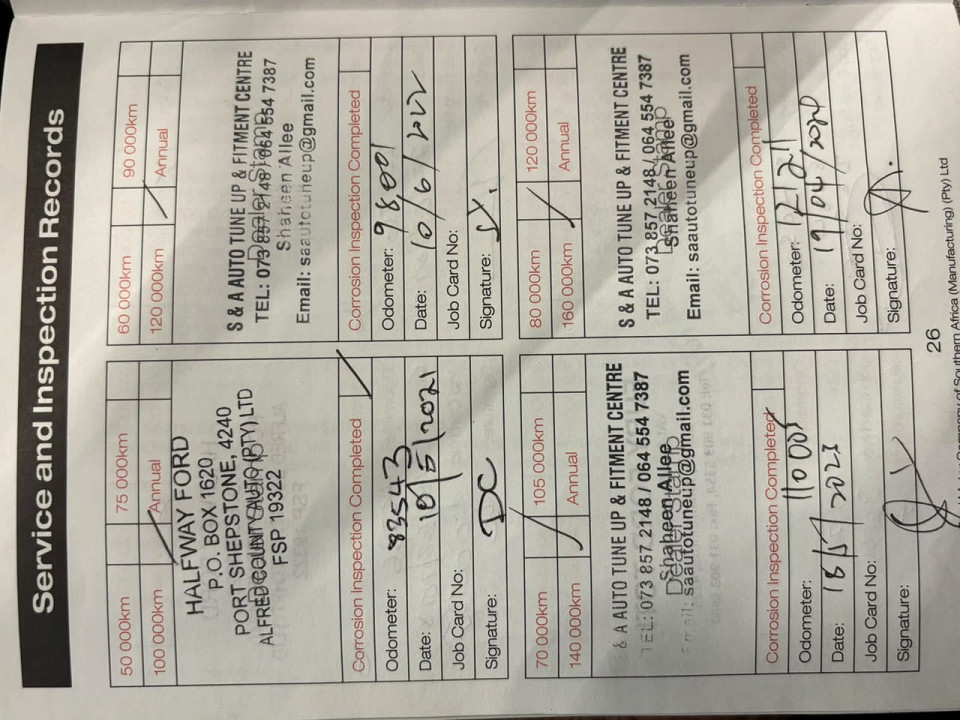 Service and Inspection Records
50 000km 75 000km
100 000km Annual
HALFWAY FORD
P.O. BOX 1620
PORT SHEPSTONE, 4240
ALFRED COUNTY AUTO (PTY) LTD
FSP 19322
Corrosion Inspection Completed
Odometer: 83543
Date: 10/5/2021
Job Card No:
Signature: DC
60 000km 90 000km
120 000km Annual
S & A AUTO TUNE UP & FITMENT CENTRE
TEL: 073 857 2148 / 064 554 7387
Dealer Stamp
Shaheen Allee
Email: saautotuneup@gmail.com
Corrosion Inspection Completed
Odometer: 98,001
Date: 10/6/2022
Job Card No:
Signature:
70 000km 105 000km
140 000km Annual
& A AUTO TUNE UP & FITMENT CENTRE
TEL: 073 857 2148 / 064 554 7387
Shaheen Allee
Dealer Stamp
Email: saautotuneup@gmail.com
Corrosion Inspection Completed
Odometer: 110005
Date: 18/5/2023
Job Card No:
Signature:
80 000km 120 000km
160 000km Annual
S & A AUTO TUNE UP & FITMENT CENTRE
TEL: 073 857 2148 / 064 554 7387
Shaheen Allee
Dealer Stamp
Email: saautotuneup@gmail.com
Corrosion Inspection Completed
Odometer:
Date: 19/04/2024
Job Card No:
Signature:
26
Company of Southern Africa (Manufacturing) (Pty) Ltd